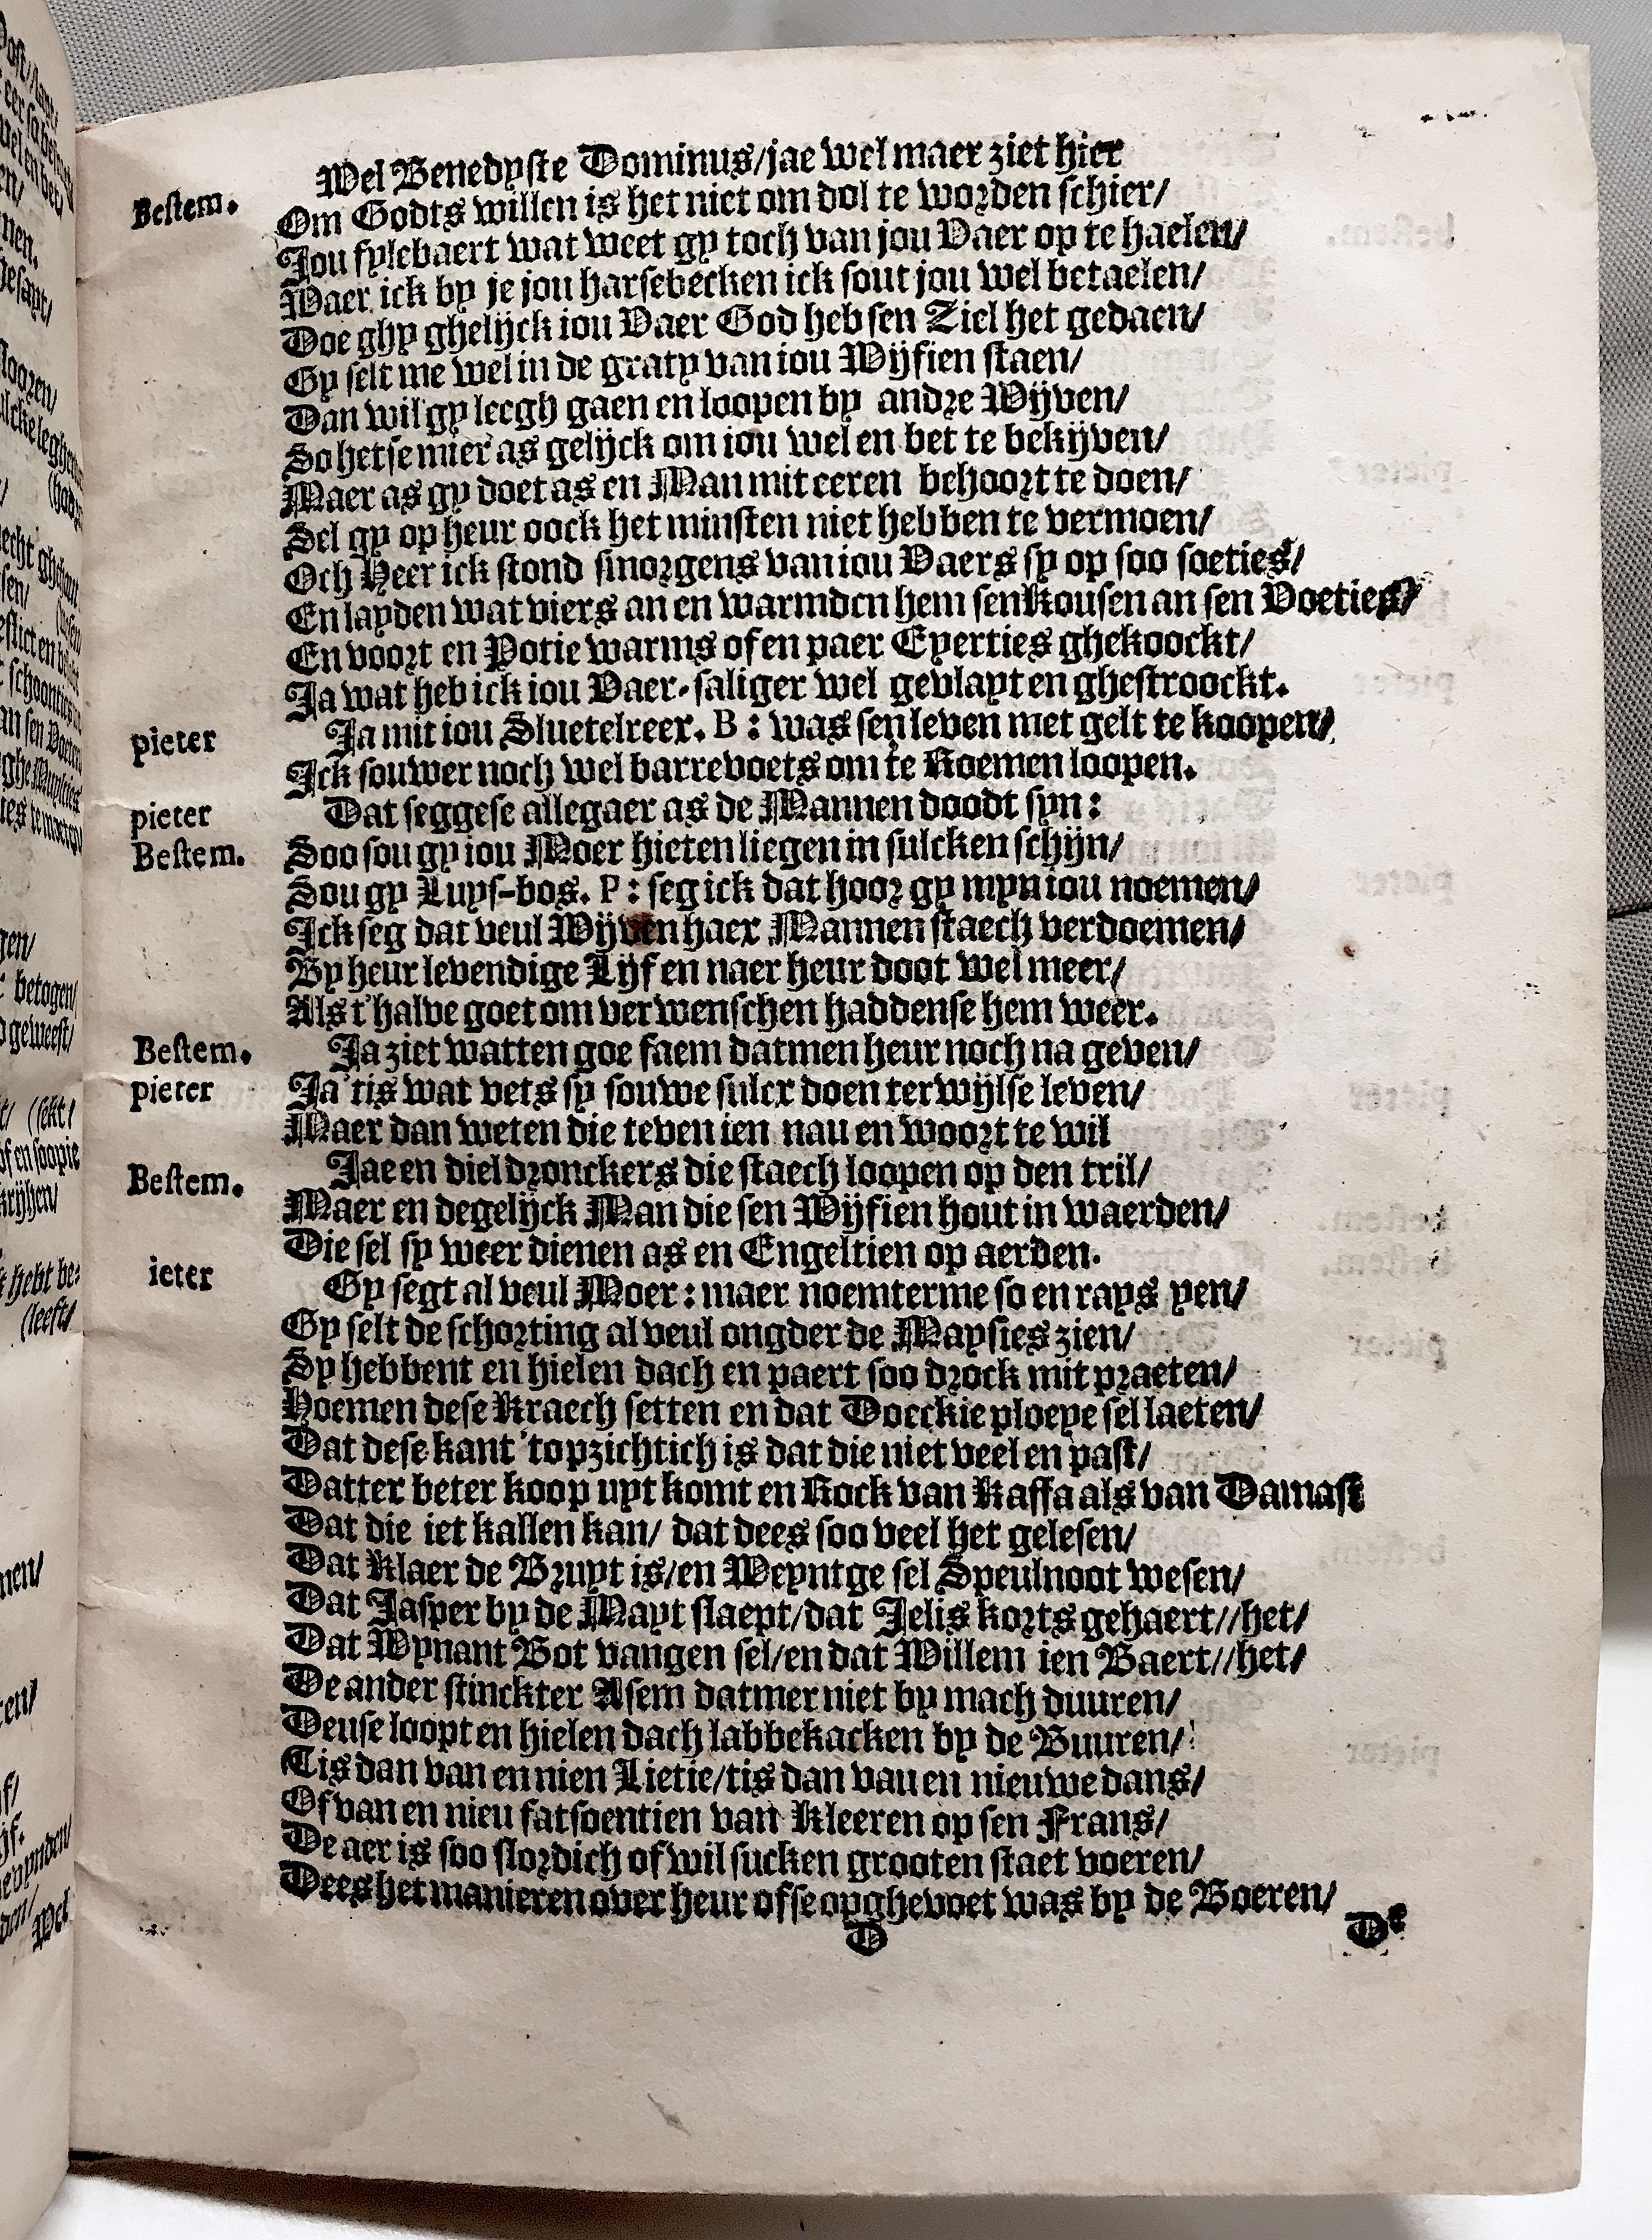 Wel Benedyste Dominus/jae wel maer ziet hier
Bestem. Om Godts willen is het niet om dol te worden schier/
Jou fylebaert wat weet gy toch van jou Vaer op te haelen/
Waer ick by je jou harsebecken ick sout jou wel betaelen/
Doe ghy ghelijck iou Vaer God heb sen Ziel het gedaen/
Gy selt me wel in de graty van iou Wijfien staen/
Dan wil gy leegh gaen en loopen by andre Wijven/
So hetse mier as gelijck om iou wel en bet te bekijven/
Maer as gy doet as en Man mit eeren behoort te doen/
Sel gy op heur oock het minsten niet hebben te vermoen/
Och Heer ick stond smorgens van iou Vaers sy op soo soeties/
En layden wat viers an en warmden hem sen Kousen an sen Voeties/
En voort en Potie warms of en paer Eyerties ghekoockt/
Ja wat heb ick iou Vaer-saliger wel gevlayt en ghestroockt.
pieter Ja mit iou Sluetelreex. B: was sen leven met gelt te koopen/
Ick souwer noch wel barrevoets om te Roemen loopen.
pieter Dat seggese allegaer as de Mannen doodt syn:
Bestem. Soo sou gy iou Moer hieten liegen in sulcken schijn/
Sou gy Luys-bos. P: seg ick dat hoor gy myn iou noemen/
Ick seg dat veul Wijven haer Mannen staech verdoemen/
By heur levendige Lijf en naer heur doot wel meer/
Als t'halve goet om ver wenschen haddense hem weer.
Bestem. Ja ziet watten goe faem datmen heur noch na geven/
pieter Ja 'tis wat vets sy souwe sulcx doen terwijlse leven/
Maer dan weten die teven ien nau en woort te wil
Bestem. Jae en dieldronckers die staech loopen op den tril/
Maer en degelijck Man die sen Wijfien hout in waerden/
Die sel sy weer dienen as en Engeltien op aerden.
ieter Gy segt al veul Moer: maer noemterme so en rays yen/
Gy selt de schorting al veul ongder de Maysies zien/
Sy hebbent en hielen dach en paert soo drock mit praeten/
Hoemen dese Kraech setten en dat Doeckie ploeye sel laeten/
Dat dese kant 'topzichtich is dat die niet veel en past/
Datter beter koop uyt komt en Rock van Kaffa als van Damast
Dat die iet kallen kan/ dat dees soo veel het gelesen/
Dat Klaer de Bruyt is/en Weyntge sel Speulnoot wesen/
Dat Jasper by de Mayt slaept/dat Jelis korts gehaert//het/
Dat Wynant Bot vangen sel/en dat Willem ien Baert//het/
De ander stinckter Asem datmer niet by mach duuren/
Deuse loopt en hielen dach labbekacken by de Buuren/
Tis dan van en nien Lietie/tis dan vau en nieuwe dans/
Of van en nieu fatsoentien van Kleeren op sen Frans/
De aer is soo slordich of wil sucken grooten staet voeren/
Dees het manieren over heur ofse opghevoet was by de Boeren/
D De